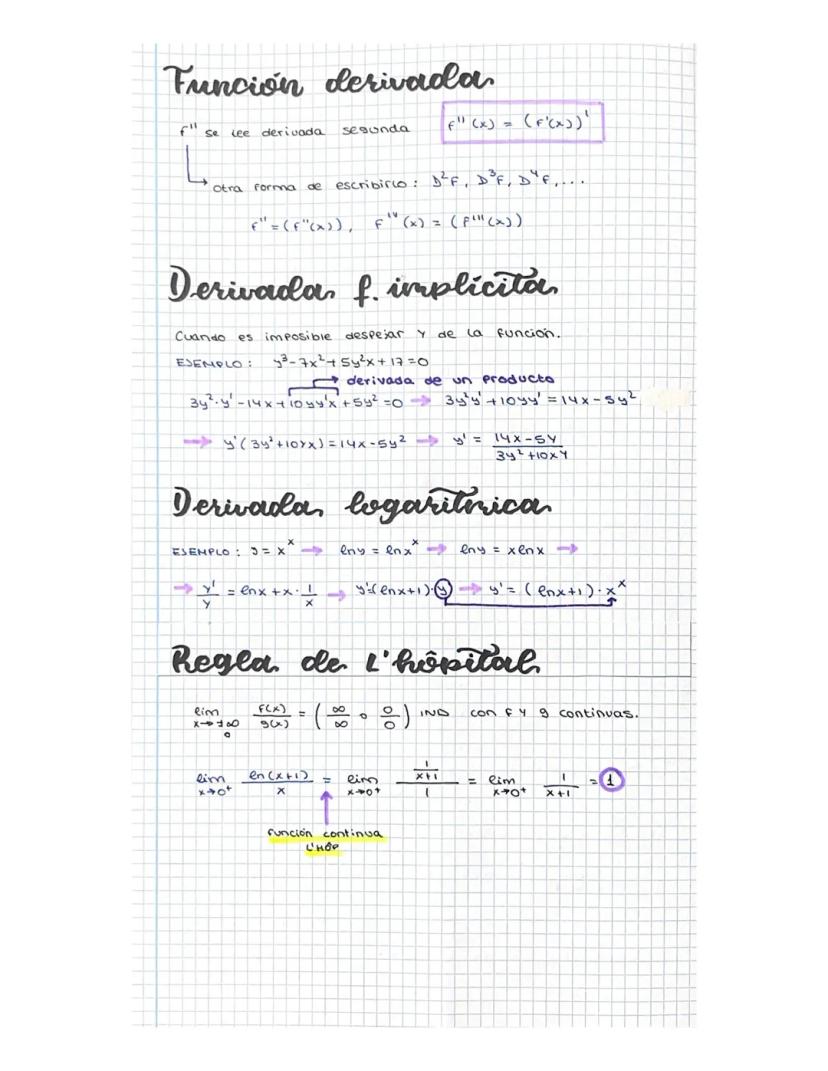 Función derivada
f'' se lee derivada segunda f''(x) = (f'(x))'
otra forma de escribirlo: D²f, D³f, D⁴f,...
f'' = (f''(x)), f^IV (x) = (f'''(x))
Derivada f. implícita
Cuando es imposible despejar y de la función.
EJEMPLO: y³-7x²+5y²x+17=0
derivada de un producto
3y²·y'-14x+10yy'x+5y²=0 → 3y²y'+10yy'=14x-5y²
→ y'(3y²+10yx)=14x-5y² → y' = \frac{14x-5y}{3y²+10xy}
Derivada logarítmica
EJEMPLO: y = x^x → ln y = ln x^x → ln y = x ln x →
→ \frac{y'}{y} = ln x + x · \frac{1}{x} → y'=(ln x+1)·y → y' = (ln x+1)·x^x
Regla de L'hôpital
lim x→±∞ 0 \frac{f(x)}{g(x)} = (\frac{∞}{∞} o \frac{0}{0}) IND con f y g continuas.
lim x→0⁺ \frac{ln(x+1)}{x} = lim x→0⁺ \frac{\frac{1}{x+1}}{1} = lim x→0⁺ \frac{1}{x+1} = 1
función continua
L'HÔP